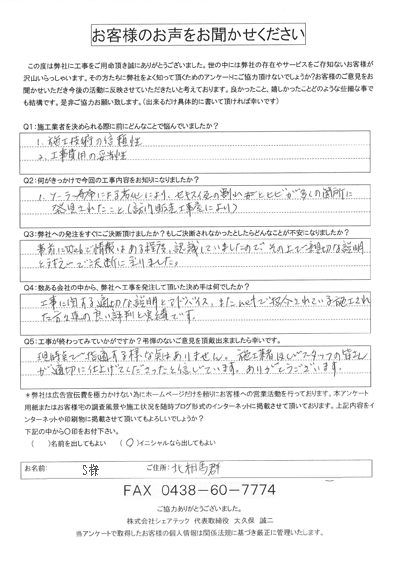 お客様のお声をお聞かせください
この度は弊社に工事をご用命頂き誠にありがとうございました。世の中には弊社の存在やサービスをご存知ないお客様が
沢山いらっしゃいます。その方たちに弊社をよく知って頂くためのアンケートにご協力頂けないでしょうか?お客様のご意見をお
聞かせいただき今後の活動に反映させていただきたいと考えております。良かったこと、嬉しかったことどのような些細な事で
も結構です。是非ご協力お願い致します。(出来るだけ具体的に書いて頂ければ幸いです)
Q1:施工業者を決められる際に前にどんなことで悩んでいましたか?
1. 施工技術の信頼性
2. 工事費用の妥当性
Q2:何がきっかけで今回の工事内容をお知りになりましたか?
1. ソーラー
発見されたこと
Q3:弊社への発注をすぐにご決断頂けましたか?もしご決断されなかったとしたらどんなことが不安になりましたか?
事前に 情報はある程度、認識していましたのでその上で親切な説明
決断に至りました。
Q4:数ある会社の中から、弊社へ工事を発注して頂いた決め手は何でしたか?
工事に関する適切な説明とアドバイス、またnetで紹介されている施工され
た方々の良い評判と実績です。
Q5:工事が終わってみていかがですか?弔弾のないご意見を頂戴出来ましたら幸いです。
現時点で指摘する様な気はありません。施工業者ほじスタッフの皆さん
が適切に仕上げてくださったと信じています。ありがとうございます。
*弊社は広告宣伝費を極力かけない為にホームページだけを頼りにお客様への営業活動を行っております。本アンケート
用紙またはお客様宅の調査風景や施工状況を随時ブログ形式のインターネットに掲載させて頂いております。上記内容をイ
ンターネットや印刷物に掲載させて頂いてもよろしいでしょうか?
下記の中から○印をお付下さい。
( )名前を出してもよい (○)イニシャルなら出してもよい
お名前: S様 ご住所: 北相馬郡
FAX 0438-60-7774
ご協力ありがとうございました。
株式会社シェアテック 代表取締役 大久保 誠二
当アンケートで取得したお客様の個人情報は関係法規に基づき厳正に管理いたします。